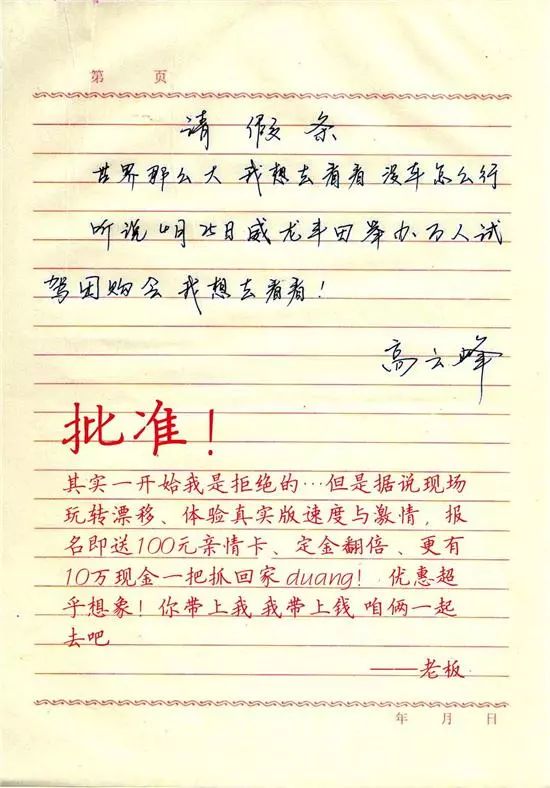 第 页
请假条
世界那么大 我想去看看 没车怎么行
听说4月25日威龙丰田举办万人试
驾团购会 我想去看看！
高云峰
批准！
其实一开始我是拒绝的…但是据说现场
玩转漂移、体验真实版速度与激情，报
名即送100元亲情卡、定金翻倍、更有
10万现金一把抓回家duang！优惠超
乎想象！你带上我 我带上钱 咱俩一起
去吧
——老板
年 月 日